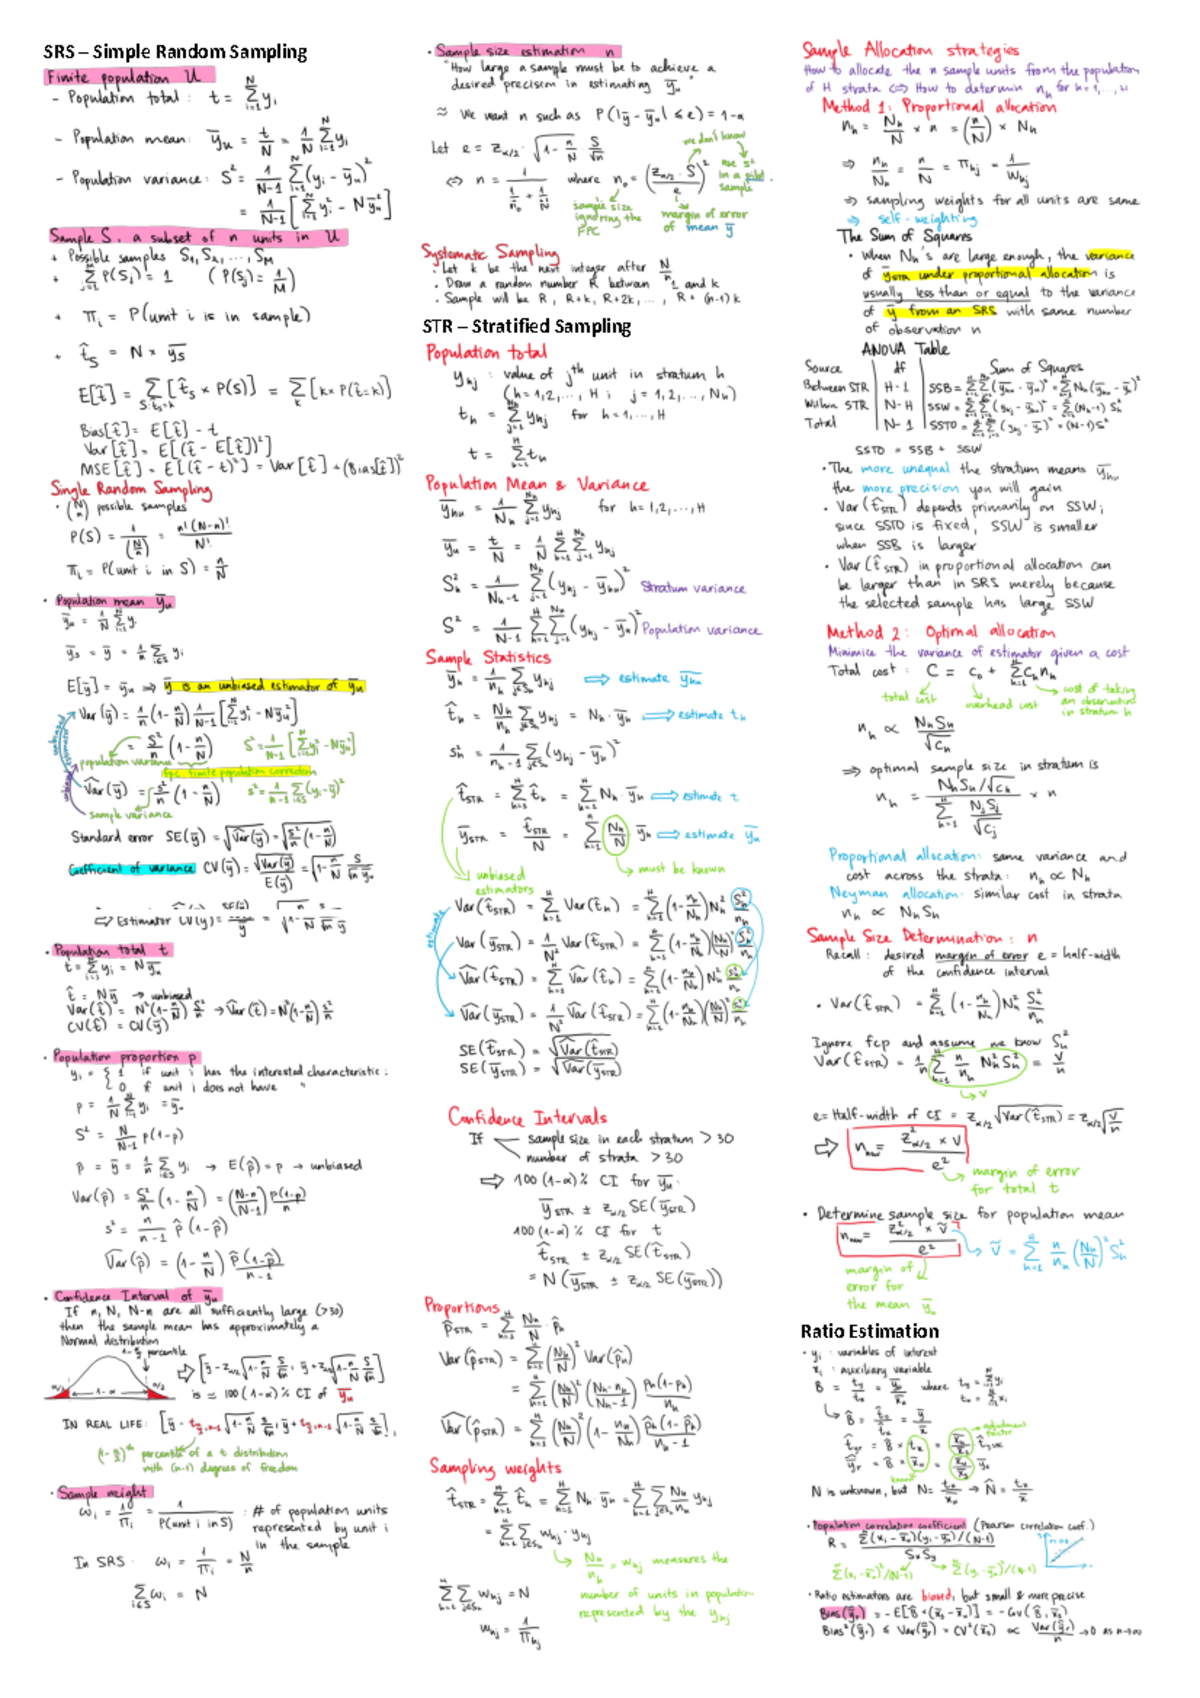 SRS – Simple Random Sampling
Finite population U
- Population total : t = Σ_{i=1}^{N} y_i
- Population mean: ȳ_u = t/N = 1/N Σ_{i=1}^{N} y_i
- Population variance: S² = 1/(N-1) Σ_{i=1}^{N} (y_i - ȳ_u)²
= 1/(N-1) [Σ_{i=1}^{N} y_i² - Nȳ_u²]
Sample S, a subset of n units in U
+ Possible samples S_1, S_2, ..., S_M
+ Σ_{j=1}^{M} P(S_j) = 1 (P(S_j) = 1/M)
+ π_i = P(unit i is in sample)
+ t̂_S = N × ȳ_S
E[t̂] = Σ_{S:t̂_S=k} [t̂_S × P(S)] = Σ_k [k × P(t̂=k)]
Bias[t̂] = E[t̂] - t
Var[t̂] = E[(t̂ - E[t̂])²]
MSE[t̂] = E[(t̂ - t)²] = Var[t̂] + (Bias[t̂])²
Single Random Sampling
· (N n) possible samples
P(S) = 1/(N n) = n!(N-n)!/N!
π_i = P(unit i in S) = n/N
· Population mean ȳ_u
ȳ_u = 1/N Σ_{i=1}^{N} y_i
ȳ_S = ȳ = 1/n Σ_{i∈S} y_i
E[ȳ] = ȳ_u ⇒ ȳ is an unbiased estimator of ȳ_u
Var(ȳ) = 1/n (1 - n/N) 1/(N-1) [Σ y_i² - Nȳ_u²]
= S²/n (1 - n/N) S² = 1/(N-1) [Σ y_i² - Nȳ_u²]
population variance
fpc: finite population correction
V̂ar(ȳ) = s²/n (1 - n/N) s² = 1/(n-1) Σ_{i∈S} (y_i - ȳ)²
sample variance
Standard error SE(ȳ) = √V̂ar(ȳ) = √(s²/n (1 - n/N))
Coefficient of variance CV(ȳ) = √Var(ȳ)/E(ȳ) = √(1 - n/N) S/(√n ȳ_u)
⇒ Estimator ĈV(ȳ) = SE(ȳ)/ȳ = √(1 - n/N) s/(√n ȳ)
· Population total t
t = Σ_{i=1}^{N} y_i = Nȳ_u
t̂ = Nȳ → unbiased
Var(t̂) = N²(1 - n/N) S²/n → V̂ar(t̂) = N²(1 - n/N) s²/n
CV(t̂) = CV(ȳ)
· Population proportion p
y_i = { 1 if unit i has the interested characteristic:
0 if unit i does not have "
p = 1/N Σ_{i=1}^{N} y_i = ȳ_u
S² = N/(N-1) p(1-p)
p̂ = ȳ = 1/n Σ_{i∈S} y_i → E(p̂) = p → unbiased
Var(p̂) = S²/n (1 - n/N) = ((N-n)/(N-1)) p(1-p)/n
s² = n/(n-1) p̂(1-p̂)
V̂ar(p̂) = (1 - n/N) p̂(1-p̂)/(n-1)
· Confidence Interval of ȳ_u
If n, N, N-n are all sufficiently large (>30)
then the sample mean has approximately a
Normal distribution
1-α/2 percentile
α/2 1-α α/2
⇒ [ȳ - z_{α/2} √(1 - n/N) S/√n , ȳ + z_{α/2} √(1 - n/N) S/√n]
is ≈ 100(1-α)% CI of ȳ_u
IN REAL LIFE: [ȳ - t_{α/2,n-1} √(1 - n/N) s/√n , ȳ + t_{α/2,n-1} √(1 - n/N) s/√n],
(1 - α/2)th percentile of a t distribution
with (n-1) degrees of freedom
· Sample weight
ω_i = 1/π_i = 1/P(unit i in S) : # of population units
represented by unit i
in the sample
In SRS ω_i = 1/π_i = N/n
Σ_{i∈S} ω_i = N
· Sample size estimation n
"How large a sample must be to achieve a
desired precision in estimating ȳ_u"
≈ We want n such as P(|ȳ - ȳ_u| ≤ e) = 1-α
we don't know
Let e = z_{α/2} · √(1 - n/N) S/√n
use s²
in a pilot
sample
⇔ n = 1/(1/n_0 + 1/N) where n_0 = (z_{α/2} · S / e)²
sample size
ignoring the
FPC
margin of error
of mean ȳ
Systematic Sampling
· Let k be the next integer after N/n
· Draw a random number R between 1 and k
· Sample will be R, R+k, R+2k, ..., R+(n-1)k
STR – Stratified Sampling
Population total
y_hj : value of jth unit in stratum h
(h=1,2,...,H ; j=1,2,...,N_h)
t_h = Σ_{j=1}^{N_h} y_hj for h=1,...,H
t = Σ_{h=1}^{H} t_h
Population Mean & Variance
ȳ_hu = 1/N_h Σ_{j=1}^{N_h} y_hj for h=1,2,...,H
ȳ_u = t/N = 1/N Σ_{h=1}^{H} Σ_{j=1}^{N_h} y_hj
S_h² = 1/(N_h-1) Σ_{j=1}^{N_h} (y_hj - ȳ_hu)² Stratum variance
S² = 1/(N-1) Σ_{h=1}^{H} Σ_{j=1}^{N_h} (y_hj - ȳ_u)² Population variance
Sample Statistics
ȳ_h = 1/n_h Σ_{j∈S_h} y_hj ⇒ estimate ȳ_hu
t̂_h = N_h/n_h Σ_{j∈S_h} y_hj = N_h · ȳ_h ⇒ estimate t_h
s_h² = 1/(n_h-1) Σ_{j∈S_h} (y_hj - ȳ_h)²
t̂_STR = Σ_{h=1}^{H} t̂_h = Σ_{h=1}^{H} N_h ȳ_h ⇒ estimate t
ȳ_STR = t̂_STR/N = Σ_{h=1}^{H} N_h/N ȳ_h ⇒ estimate ȳ_u
must be known
unbiased
estimators
estimate
Var(t̂_STR) = Σ_{h=1}^{H} Var(t̂_h) = Σ_{h=1}^{H} (1 - n_h/N_h) N_h² S_h²/n_h
Var(ȳ_STR) = 1/N² Var(t̂_STR) = Σ_{h=1}^{H} (1 - n_h/N_h)(N_h/N)² S_h²/n_h
V̂ar(t̂_STR) = Σ_{h=1}^{H} V̂ar(t̂_h) = Σ_{h=1}^{H} (1 - n_h/N_h) N_h² s_h²/n_h
V̂ar(ȳ_STR) = 1/N² V̂ar(t̂_STR) = Σ_{h=1}^{H} (1 - n_h/N_h)(N_h/N)² s_h²/n_h
SE(t̂_STR) = √V̂ar(t̂_STR)
SE(ȳ_STR) = √V̂ar(ȳ_STR)
Confidence Intervals
If sample size in each stratum > 30
number of strata > 30
⇒ 100(1-α)% CI for ȳ_u:
ȳ_STR ± z_{α/2} SE(ȳ_STR)
100(1-α)% CI for t
t̂_STR ± z_{α/2} SE(t̂_STR)
= N(ȳ_STR ± z_{α/2} SE(ȳ_STR))
Proportions
p̂_STR = Σ_{h=1}^{H} N_h/N p̂_h
Var(p̂_STR) = Σ_{h=1}^{H} (N_h/N)² Var(p̂_h)
= Σ_{h=1}^{H} (N_h/N)² ((N_h-n_h)/(N_h-1)) p_h(1-p_h)/n_h
V̂ar(p̂_STR) = Σ_{h=1}^{H} (N_h/N)² (1 - n_h/N_h) p̂_h(1-p̂_h)/(n_h-1)
Sampling weights
t̂_STR = Σ_{h=1}^{H} t̂_h = Σ_{h=1}^{H} N_h · ȳ_h = Σ_{h=1}^{H} Σ_{j∈S_h} N_h/n_h y_hj
= Σ_{h=1}^{H} Σ_{j∈S_h} w_hj · y_hj
N_h/n_h = w_hj measures the
number of units in population
represented by the y_hj
Σ_{h=1}^{H} Σ_{j∈S_h} w_hj = N
w_hj = 1/π_hj
Sample Allocation strategies
How to allocate the n sample units from the population
of H strata ⇔ How to determin n_h for h=1,...,H
Method 1: Proportional allocation
n_h = N_h/N × n = (n/N) × N_h
⇒ n_h/N_h = n/N = π_hj = 1/w_hj
⇒ sampling weights for all units are same
⇒ self-weighting
The Sum of Squares
· When N_h's are large enough, the variance
of ȳ_STR under proportional allocation is
usually less than or equal to the variance
of ȳ from an SRS with same number
of observation n
ANOVA Table
Source df Sum of Squares
Between STR H-1 SSB = ΣΣ(ȳ_hu - ȳ_u)² = ΣN_h(ȳ_hu - ȳ_u)²
Within STR N-H SSW = ΣΣ(y_hj - ȳ_hu)² = Σ(N_h-1) S_h²
Total N-1 SSTO = ΣΣ(y_hj - ȳ_u)² = (N-1)S²
SSTO = SSB + SSW
· The more unequal the stratum means ȳ_hu,
the more precision you will gain
· Var(t̂_STR) depends primarily on SSW;
since SSTO is fixed, SSW is smaller
when SSB is larger
· Var(t̂_STR) in proportional allocation can
be larger than in SRS merely because
the selected sample has large SSW
Method 2: Optimal allocation
Minimize the variance of estimator given a cost
Total cost : C = c_0 + Σ_{h=1}^{H} c_h n_h
total cost
overhead cost
cost of taking
an observation
in stratum h
n_h ∝ N_h S_h/√c_h
⇒ optimal sample size in stratum is
n_h = (N_h S_h/√c_h)/(Σ_{j=1}^{H} N_j S_j/√c_j) × n
Proportional allocation: same variance and
cost across the strata: n_h ∝ N_h
Neyman allocation: similar cost in strata
n_h ∝ N_h S_h
Sample Size Determination: n
Recall: desired margin of error e = half-width
of the confidence interval
· Var(t̂_STR) = Σ_{h=1}^{H} (1 - n_h/N_h) N_h² S_h²/n_h
Ignore fcp and assume we know S_h²
Var(t̂_STR) = 1/n Σ_{h=1}^{H} n/n_h N_h² S_h² = V/n
V
e = Half-width of CI = z_{α/2} √Var(t̂_STR) = z_{α/2} √(V/n)
⇒ n_new = z²_{α/2} × V / e²
margin of error
for total t
· Determine sample size for population mean
n_new = z²_{α/2} × Ṽ / e² Ṽ = Σ_{h=1}^{H} n/n_h (N_h/N)² S_h²
margin of
error for
the mean ȳ_u
Ratio Estimation
· y_i : variables of interest
x_i : auxiliary variable
B = t_y/t_x = ȳ_u/x̄_u where t_y = Σ y_i
t_x = Σ x_i
B̂ = t̂_y/t̂_x = ȳ/x̄
adjustment
factor
t̂_yr = B̂ × t_x
ȳ̂_r = B̂ × x̄_u
known
N is unknown, but N = t_x/x̄_u → N̂ = t_x/x̄
· Population correlation coefficient (Pearson correlation coef.)
R = Σ(x_i - x̄_u)(y_i - ȳ_u)/(N-1) / S_x S_y
Σ(x_i - x̄_u)²/(N-1) Σ(y_i - ȳ_u)²/(N-1)
· Ratio estimators are biased, but small & more precise
Bias(ȳ̂_r) = -E[B̂(x̄_S - x̄_u)] = -Cov(B̂, x̄_S)
Bias²(ȳ̂_r) ≤ Var(ȳ̂_r) × CV²(x̄_S) ∝ Var(ȳ̂_r)/n → 0 as n→∞